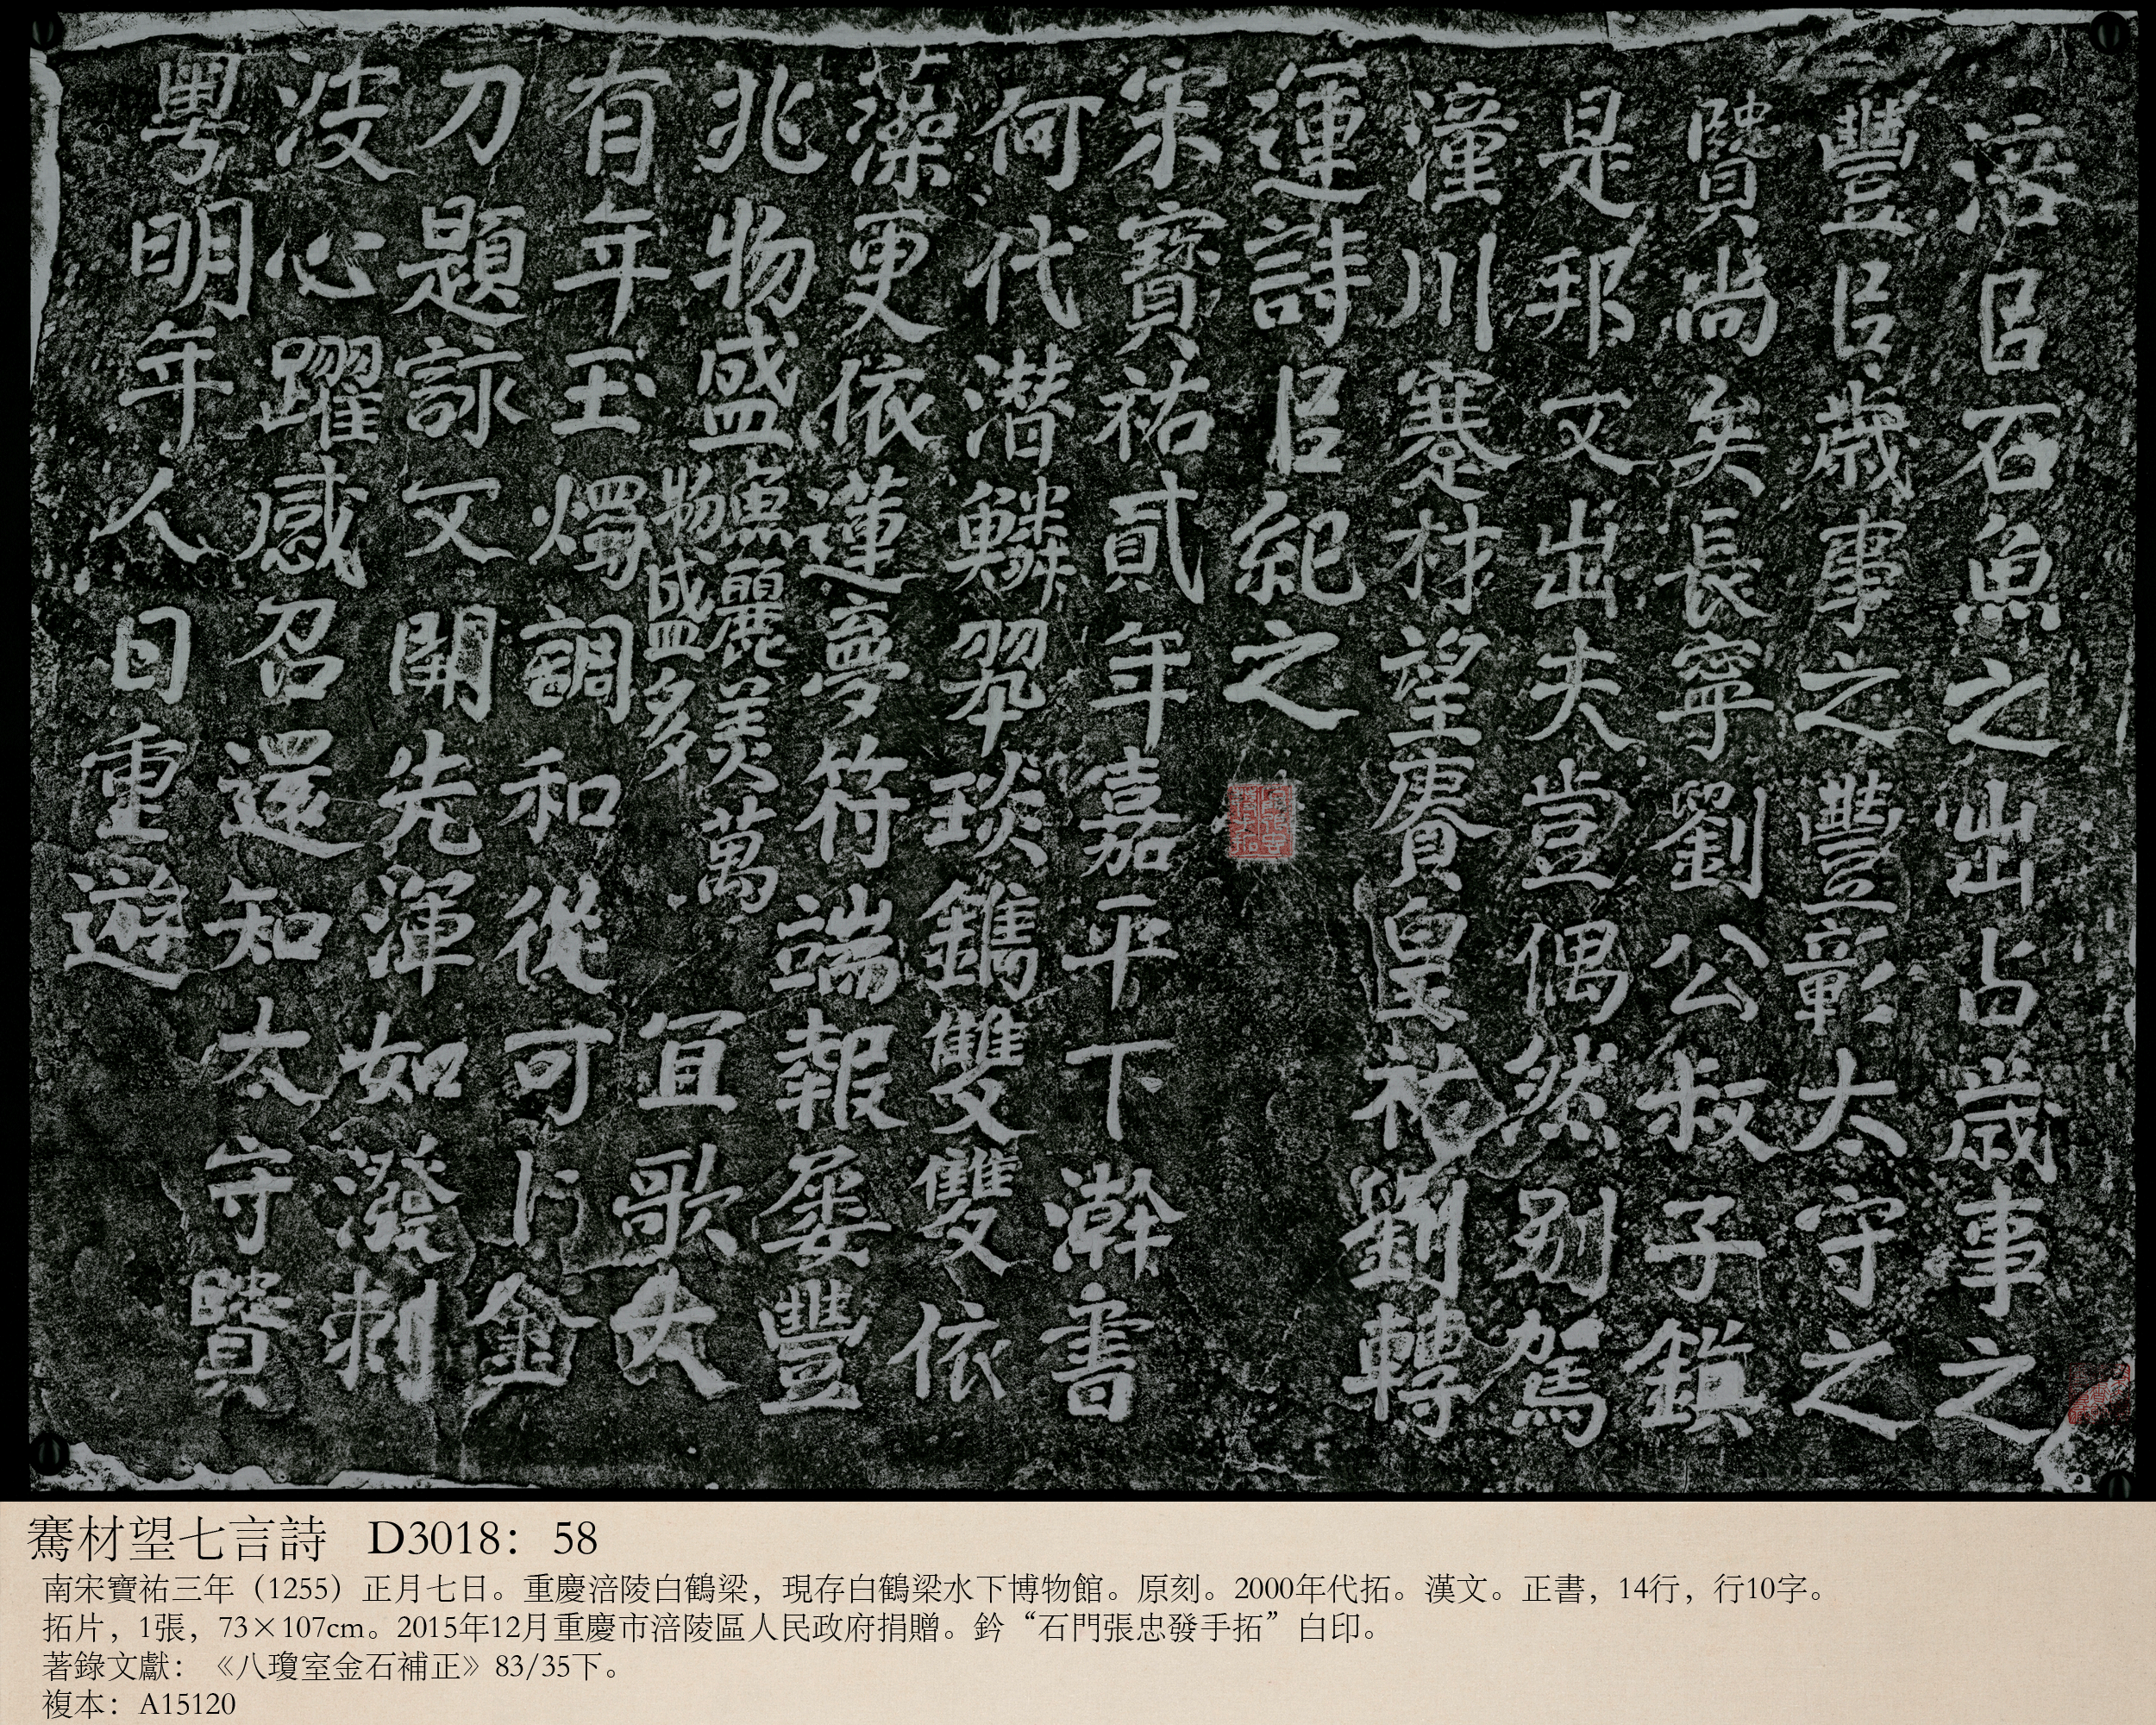 涪㠯石魚之出占歲事之
豐㠯歲事之豐彰太守之
賢尚矣長寧劉公叔子鎮
是邦又出夫豈偶然別駕
潼川蹇材望賡皇祐劉轉
運詩㠯紀之
宋寶祐貳年嘉平下澣書
何代潜鱗翠琰鐫雙雙依
藻更依蓮夢符端報屢豐
兆物盛魚麗美萬物盛多宜歌大
有年玉燭調和從可卜金
刀題詠又開先渾如潑刺
波心躍感召還知太守賢
粵明年人日重遊
騫材望七言詩 D3018：58
南宋寶祐三年（1255）正月七日。重慶涪陵白鶴梁，現存白鶴梁水下博物館。原刻。2000年代拓。漢文。正書，14行，行10字。
拓片，1張，73×107cm。2015年12月重慶市涪陵區人民政府捐贈。鈐“石門張忠發手拓”白印。
著錄文獻：《八瓊室金石補正》83/35下。
複本：A15120